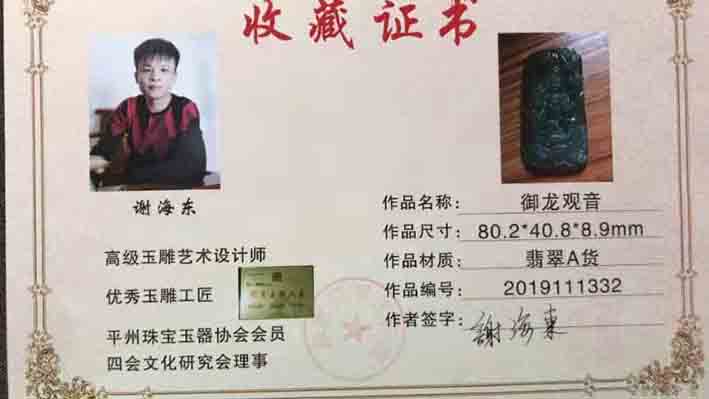 收藏证书
谢海东
高级玉雕艺术设计师
优秀玉雕工匠
平州珠宝玉器协会会员
四会文化研究会理事
作品名称：御龙观音
作品尺寸：80.2*40.8*8.9mm
作品材质：翡翠A货
作品编号：2019111332
作者签字：謝海東